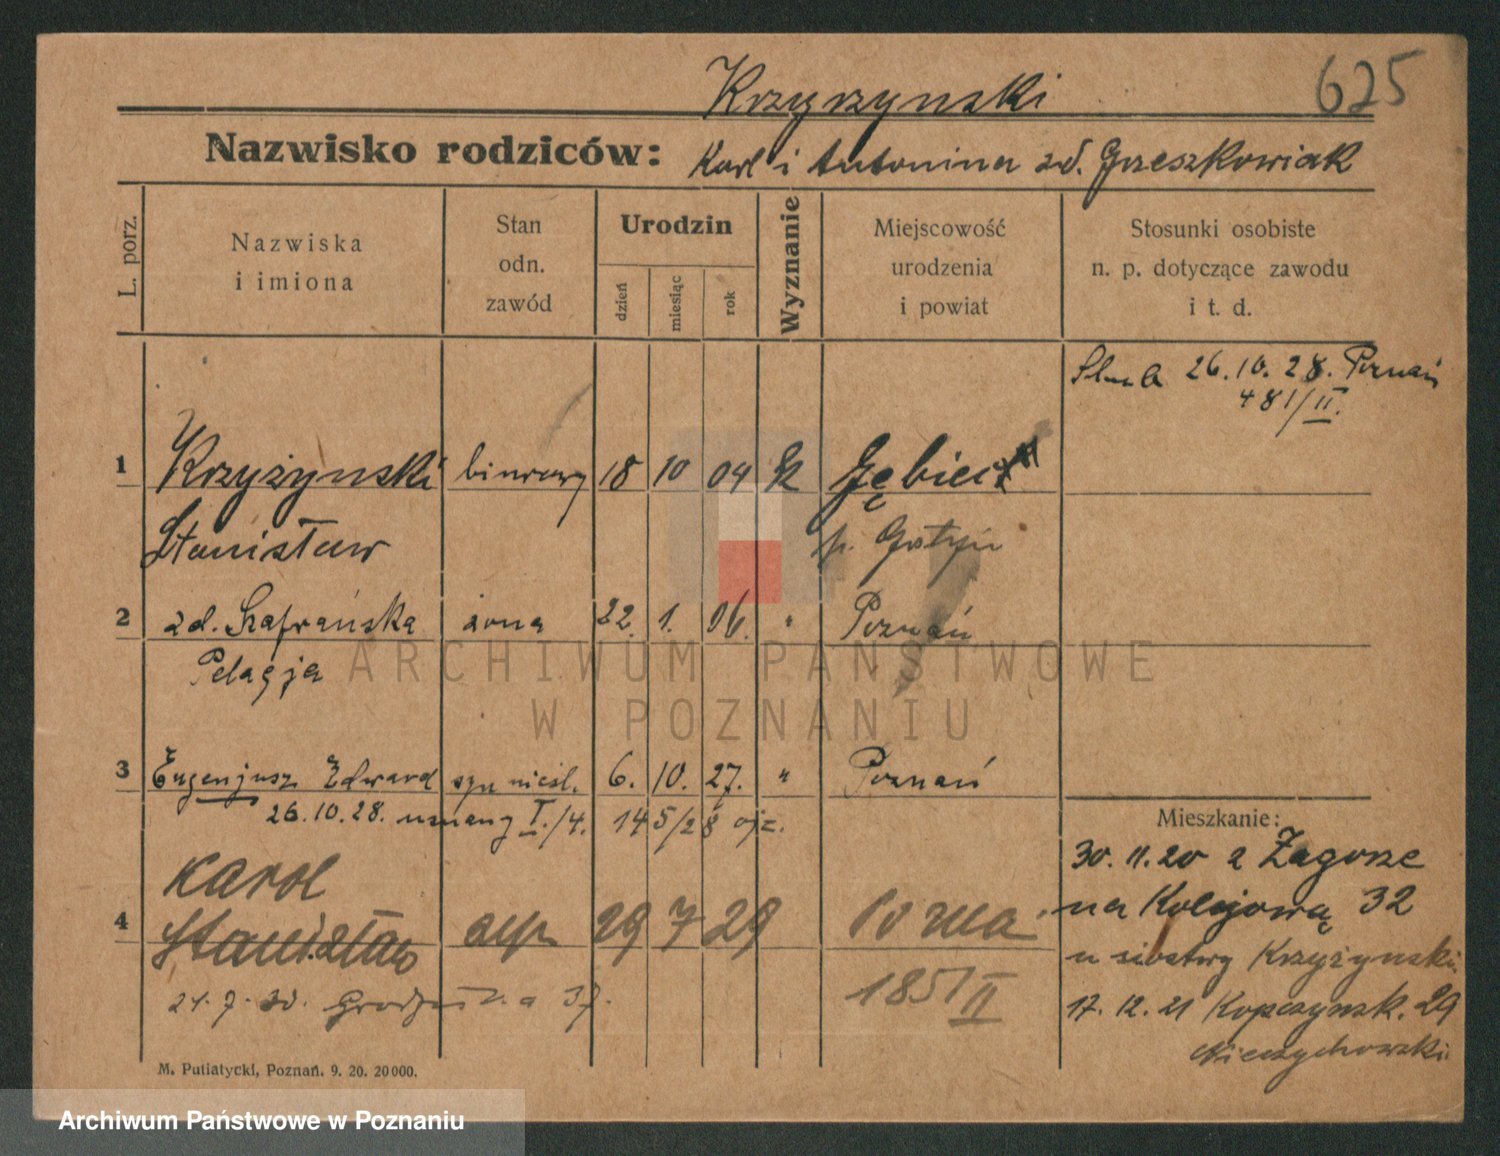 625
Krzyrzynski
Nazwisko rodziców: Karl i Antonina zd. Grzeszkowiak
L. porz.
Nazwiska
i imiona
Stan
odn.
zawód
Urodzin
dzień
miesiąc
rok
Wyznanie
Miejscowość
urodzenia
i powiat
Stosunki osobiste
n. p. dotyczące zawodu
i t. d.
26.10.28. Poznań
481/II.
1 Krzyżyński biurowy 18 10 04 k
Stanisław p. Gostyń
2 zd. Szafrańska żona 22. 1. 06. " Poznań
Pelagja
3 Eugenjusz Edward syn nieśl. 6. 10. 27. " Poznań
26.10.28. uznany I./4. 14 5/28 ojc.
Karol
4 Stanisław syn 29 7 29
1851/II
Mieszkanie:
30.11.20 z Zagorze
na Kolejową 32
u siostry Krzyżynski
17.12.21 29
Niezychowski
M. Putiatycki, Poznań. 9. 20. 20000.
ARCHIWUM PAŃSTWOWE
W POZNANIU
Archiwum Państwowe w Poznaniu